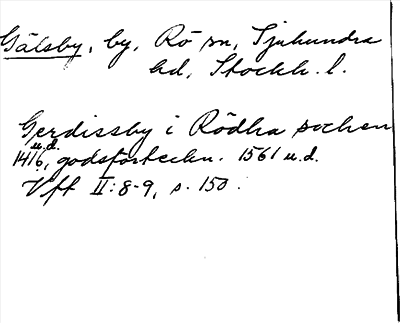 Gälsby, by, Rö sn, Sjuhundra
hd, Stockh. l.
Gerdissby i Rödha sochen
u.d.
1416, godsförteckn. 1561 u.d.
Vff II:8-9, s. 150.